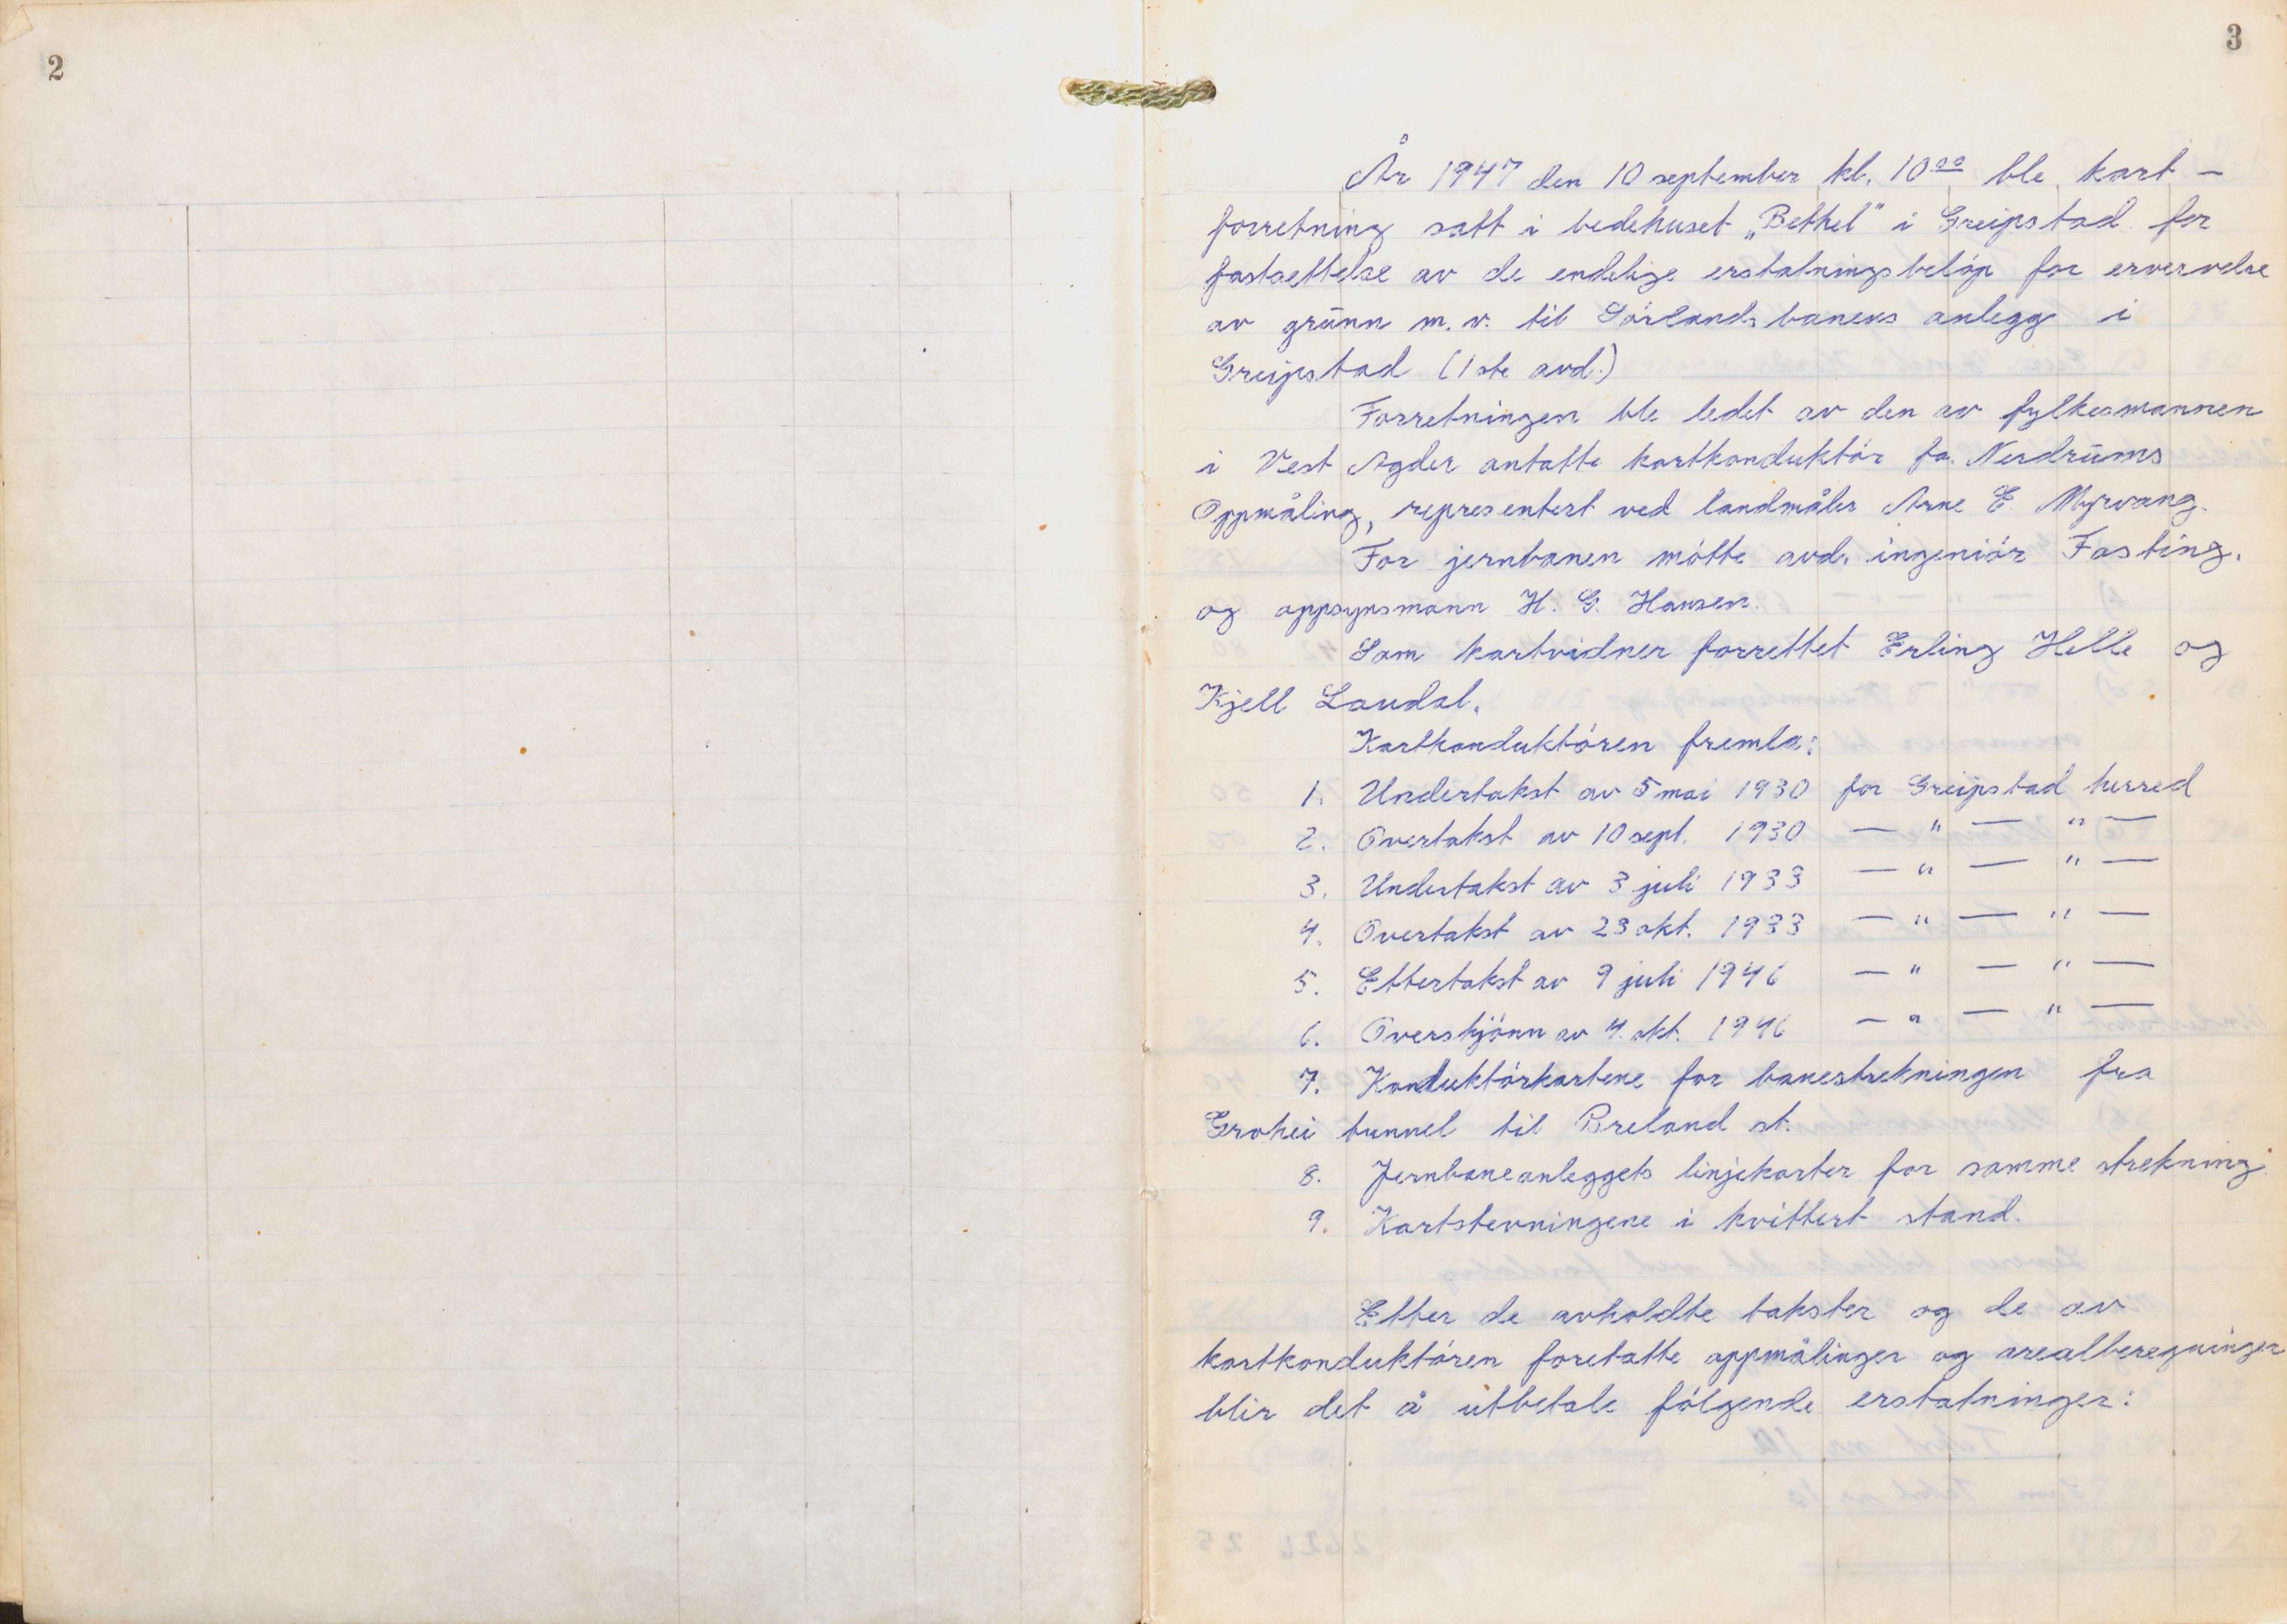 2
3
År 1947 den 10 september kl. 10⁰⁰ ble kart-
forretning satt i bedehuset „Bethel" i Greipstad for
fastsettelse av de endelige erstatningsbeløp for ervervelse
av grunn m.v. til Sørlandsbanens anlegg i
Greipstad (1ste avd.)
Forretningen ble ledet av den av fylkesmannen
i Vest Agder antatte kartkonduktör fa. Nerdrums
Oppmåling, representert ved landmåler Arne E. Myrvang.
For jernbanen møtte avd. ingeniør Fasting.
og oppsynsmann H. G. Hansen.
Som kartvidner forrettet Erling Helle og
Kjell Laudal.
Kartkonduktøren fremla:
1. Undertakst av 5 mai 1930 for Greipstad herred
2. Overtakst av 10 sept. 1930 — " — " —
3. Undertakst av 3 juli 1933 — " — " —
4. Overtakst av 23 okt. 1933 — " — " —
5. Ettertakst av 9 juli 1946 — " — " —
6. Overskjønn av 4. okt. 1946 — " — " —
7. Konduktørkartene for banestrekningen fra
Grohei tunnel til Breland st.
8. Jernbaneanleggets linjekarter for samme strekning.
9. Kartstevningene i kvittert stand.
Etter de avholdte takster og de av
kartkonduktøren foretatte oppmålinger og arealberegninger
blir det å utbetale følgende erstatninger: